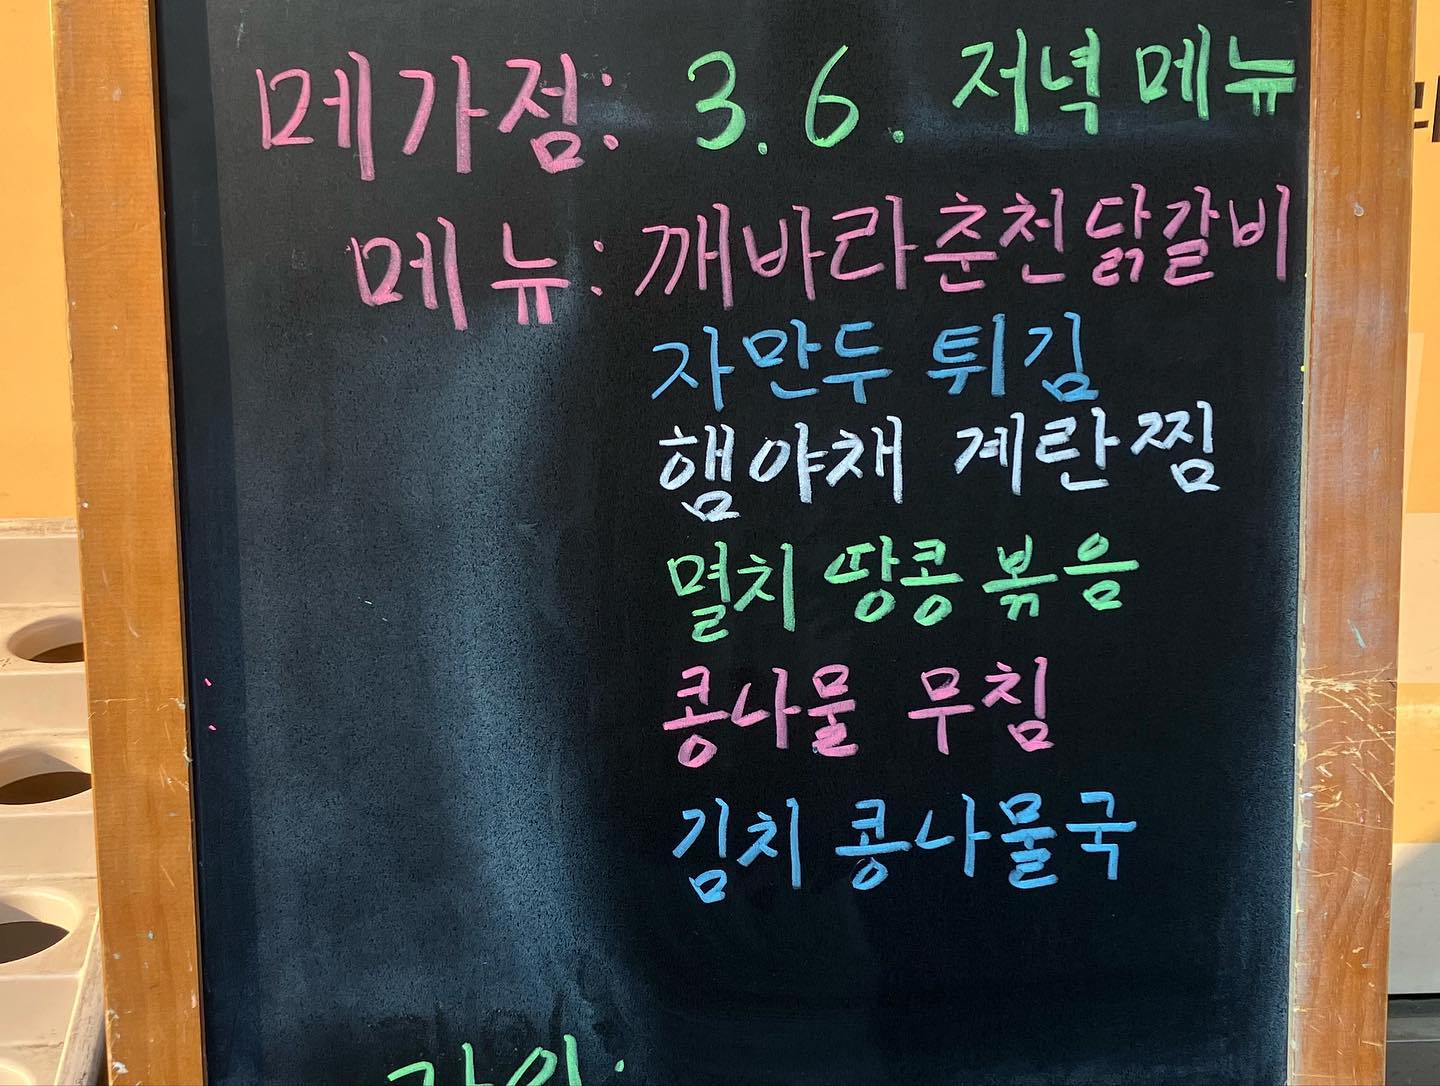 메가점: 3.6. 저녁 메뉴
메뉴: 깨바라춘천닭갈비
자만두 튀김
햄야채 계란찜
멸치 땅콩 볶음
콩나물 무침
김치 콩나물국